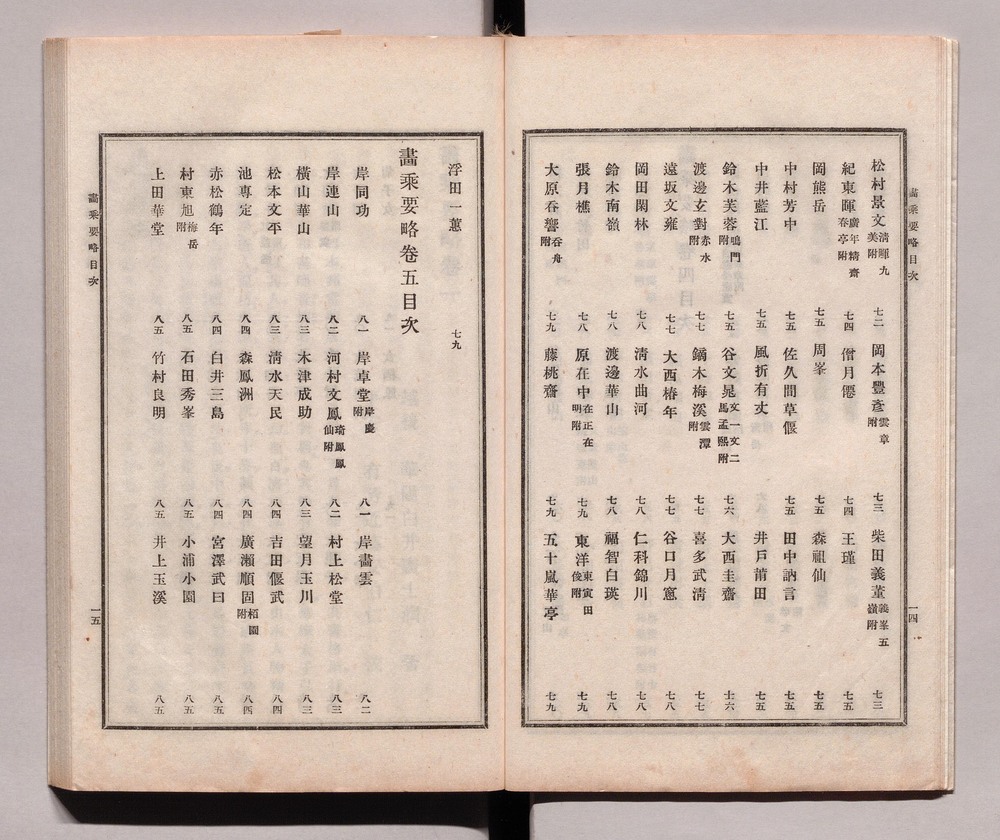 畫乘要略目次
一四
松村景文 清暉九美附 七二 岡本豐彥 雲章附 七三 柴田義董 義峯五嶺附 七三
紀東暉 廣年精齋春亭附 七四 僧月僊 七四 王瑾 七五
岡熊岳 七五 周峯 七五 森祖仙 七五
中村芳中 七五 佐久間草偃 七五 田中訥言 七五
中井藍江 七五 風折有丈 井戶莆田 七五
鈴木芙蓉 鳴門附 七五 谷文晁 文一文二馬孟熙附 七六 大西圭齋 七六
渡邊玄對 赤水附 七七 鏑木梅溪 雲潭附 七七 喜多武淸 七七
遠坂文雍 七七 大西椿年 七七 谷口月窻 七八
岡田閑林 七八 淸水曲河 七八 仁科錦川 七八
鈴木南嶺 七八 渡邊華山 七八 福智白瑛 七八
張月樵 七八 原在中 在正在明附 七九 東洋 東寅田俊附 七九
大原吞響 吞舟附 七九 藤桃齋 七九 五十嵐華亭 七九
浮田一蕙 七九
畫乘要略卷五目次
岸同功 八一 岸卓堂 岸慶附 八一 岸畫雲 八二
岸連山 八二 河村文鳳 琦鳳鳳仙附 八二 村上松堂 八三
橫山華山 八三 木津成助 八三 望月玉川 八三
松本文平 八三 淸水天民 八四 吉田偃武 八四
池專定 八四 森鳳洲 八四 廣瀨順固 栢園附 八四
赤松鶴年 八四 白井三島 八四 宮澤武曰 八五
村東旭 梅岳附 八五 石田秀峯 八五 小浦小園 八五
上田華堂 八五 竹村良明 八五 井上玉溪 八五
畫乘要略目次
一五